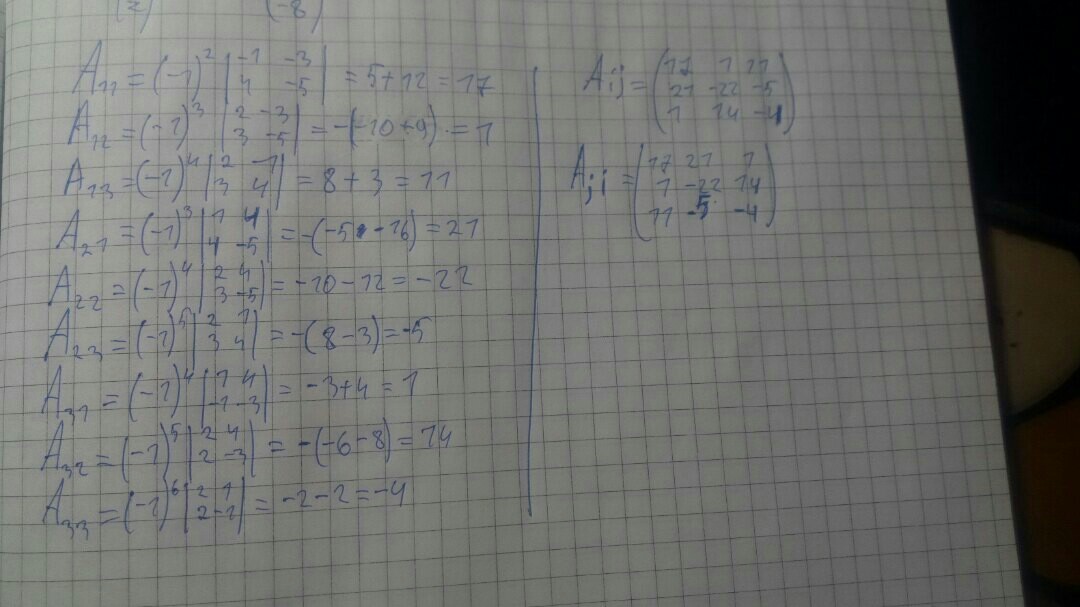 (2) (-8)
A₁₁ = (-1)² | -1 -3 | 4 -5 | = 5+12 = 17
A₁₂ = (-1)³ | 2 -3 | 3 -5 | = -(-10+9) = 1
A₁₃ = (-1)⁴ | 2 -1 | 3 4 | = 8+3 = 11
A₂₁ = (-1)³ | 1 4 | 4 -5 | = -(-5 -16) = 21
A₂₂ = (-1)⁴ | 2 4 | 3 -5 | = -10-12 = -22
A₂₃ = (-1)⁵ | 2 1 | 3 4 | = -(8-3) = -5
A₃₁ = (-1)⁴ | 1 4 | -1 -3 | = -3+4 = 1
A₃₂ = (-1)⁵ | 2 4 | 2 -3 | = -(-6-8) = 14
A₃₃ = (-1)⁶ | 2 1 | 2 -1 | = -2-2 = -4
Aij = ( 17 1 11
21 -22 -5
1 14 -4 )
Aji = ( 17 21 1
1 -22 14
11 -5 -4 )